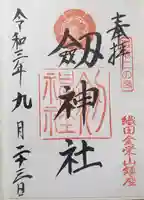 奉拝
越前二の宮
劔神社
織田金栄山鎮座
令和二年九月二十三日